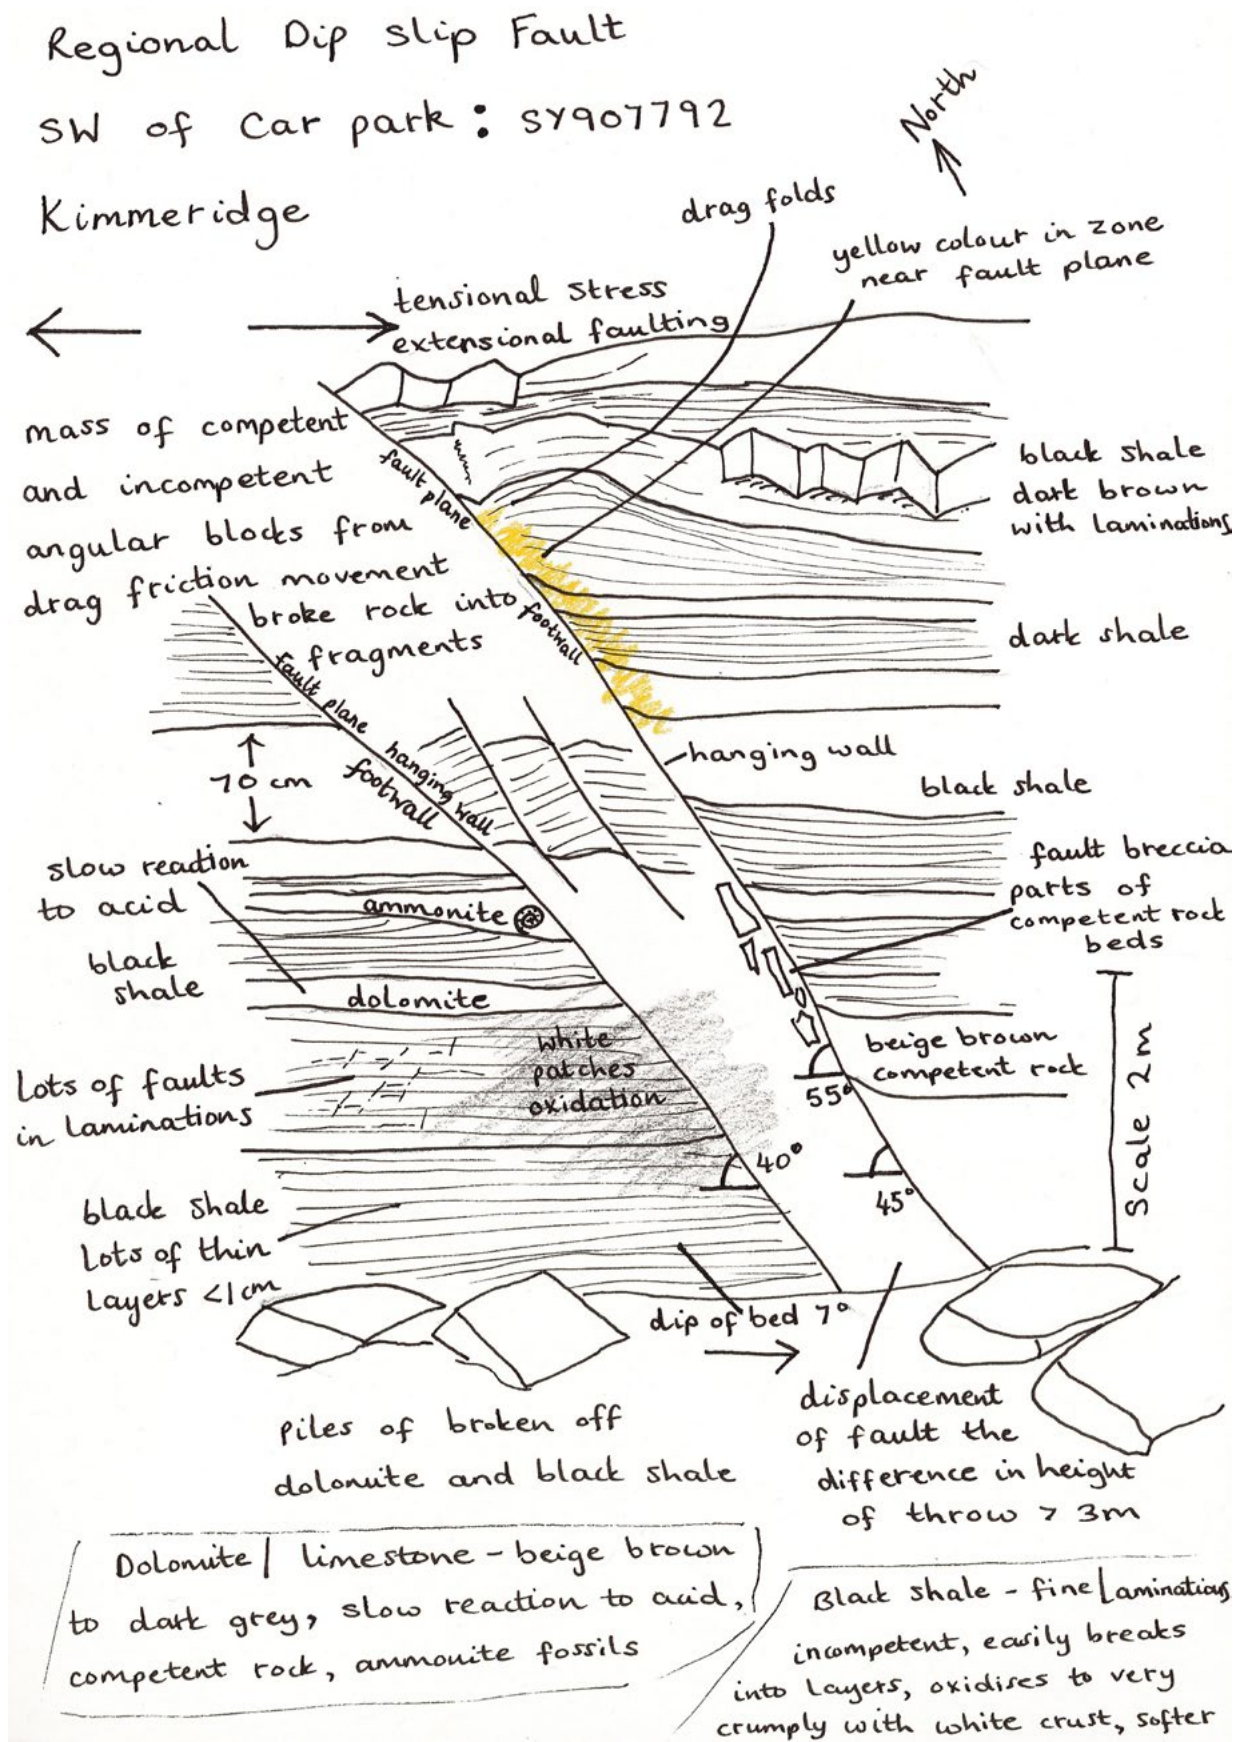 Regional Dip slip Fault
SW of Car park : SY907792
Kimmeridge
North
drag folds
yellow colour in zone
near fault plane
tensional stress
extensional faulting
mass of competent
and incompetent
angular blocks from
drag friction movement
broke rock into
fragments
fault plane
footwall
black shale
dark brown
with laminations
dark shale
fault plane
hanging wall
footwall
hanging wall
70 cm
black shale
slow reaction
to acid
ammonite
fault breccia
parts of
competent rock
beds
black
shale
dolomite
white
patches
oxidation
beige brown
competent rock
55°
Lots of faults
in laminations
40°
45°
Scale 2m
black shale
Lots of thin
Layers <1cm
dip of bed 7°
displacement
of fault the
difference in height
of throw > 3m
piles of broken off
dolomite and black shale
Dolomite / limestone - beige brown
to dark grey, slow reaction to acid,
competent rock, ammonite fossils
Black shale - fine laminations
incompetent, easily breaks
into layers, oxidises to very
crumply with white crust, softer